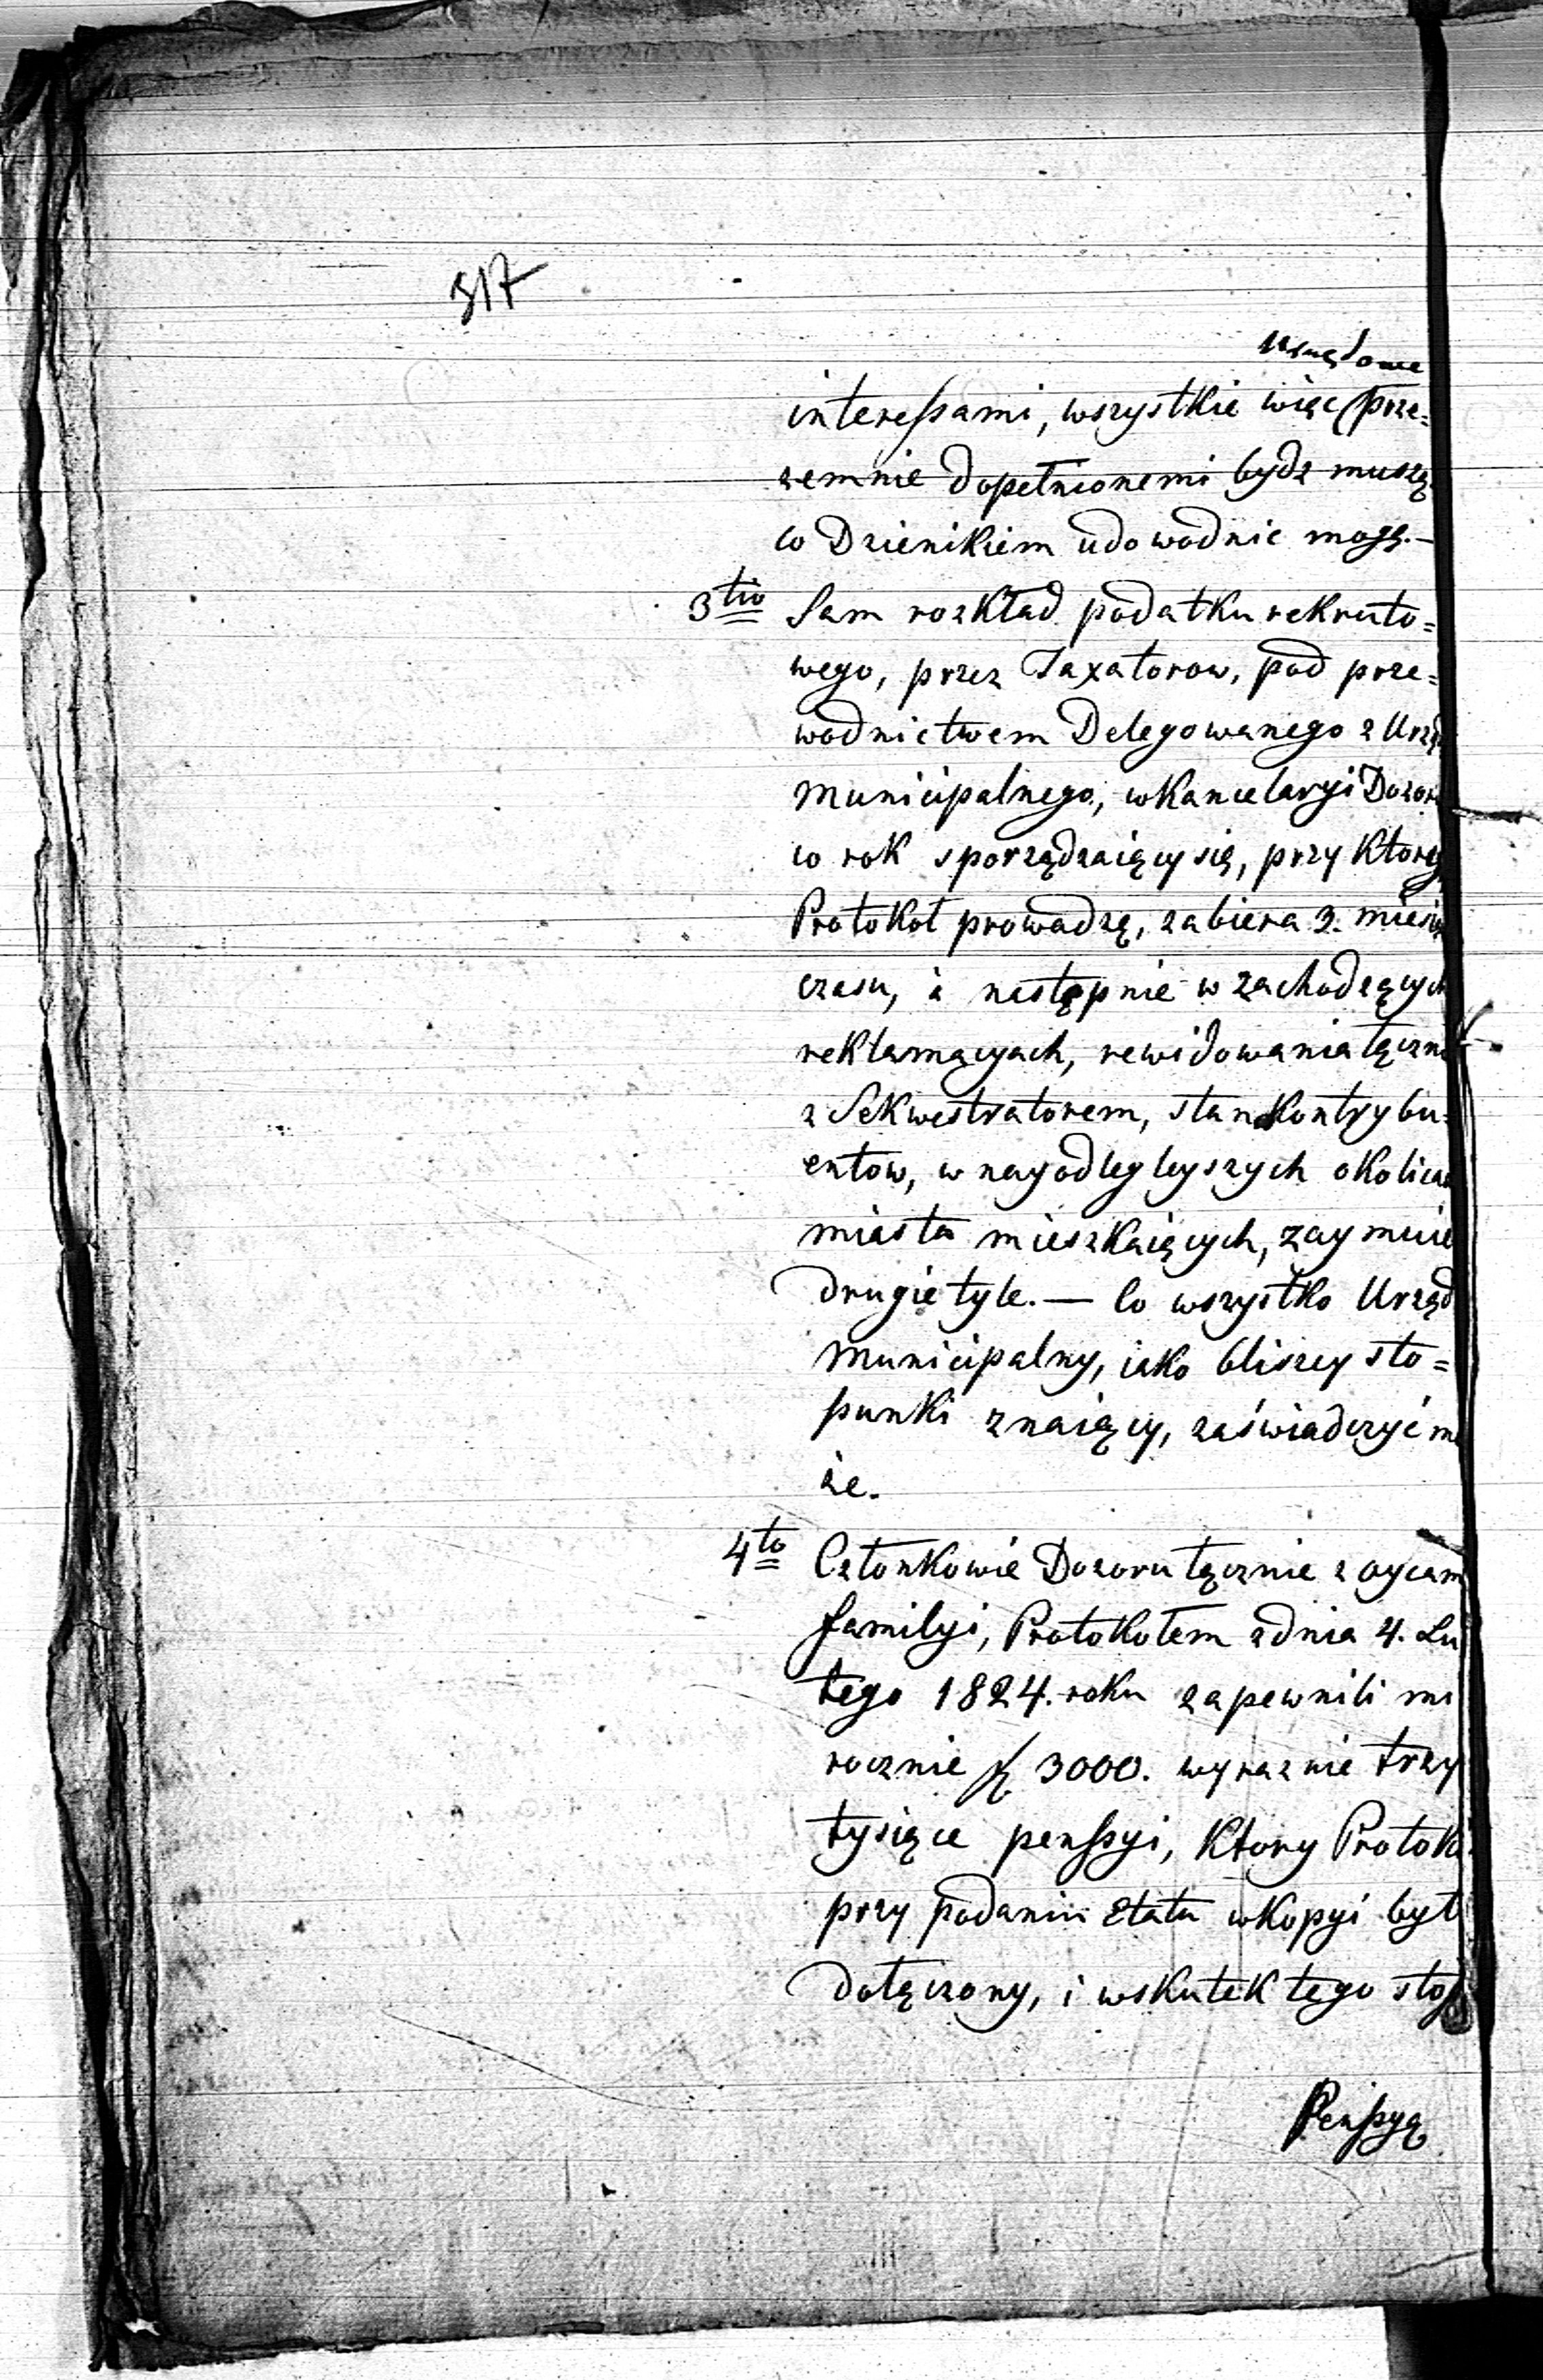 317
interessami, wszystkie więc prze=
zemnie dopełnionemi bydz muszą
co Dzienikiem udowodnic mogę.—
3tio Sam rozkład podatku rekruto=
wego, przez Taxatorow, pod prze=
wodnictwem Delegowanego z Urzę
Municipalnego, w Kancelaryi Dozor
co rok sporządzaiący się, przy ktorey
Protokoł prowadzę, zabiera 3. miesią
czasu, a następnie w zachodzących
reklamacyach, rewidowania łączne
z Sekwestratorem, stan Kontrybu=
entow, w nayodlegleyszych okolicac
miasta mieszkaiących, zaymuie
drugie tyle.— Co wszystko Urząd
Municipalny, iako bliszey sto=
sunki znaiący, zaświadczyć mo
że.
4to Członkowie Dozoru łącznie z oycam
familyi, Protokołem z dnia 4. Lu
tego 1824. roku zapewnili mi
rocznie f 3000. wyraznie trzy
tysiące penssyi, Ktory Protok
przy podaniu Etatu w Kopyi był
dołączony, i wskutek tego sto
Penssyą